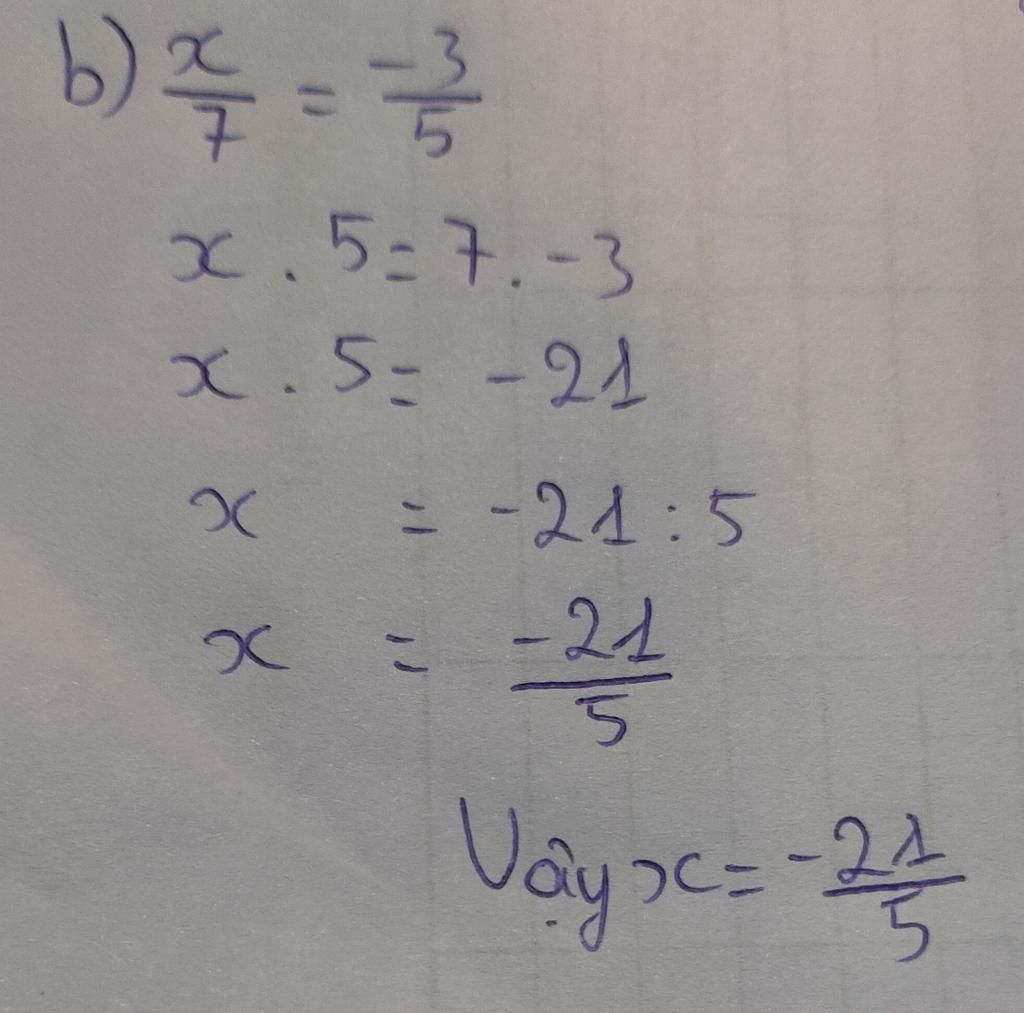 b) x/7 = -3/5
x . 5 = 7 . -3
x . 5 = -21
x = -21 : 5
x = -21/5
Vậy x = -21/5